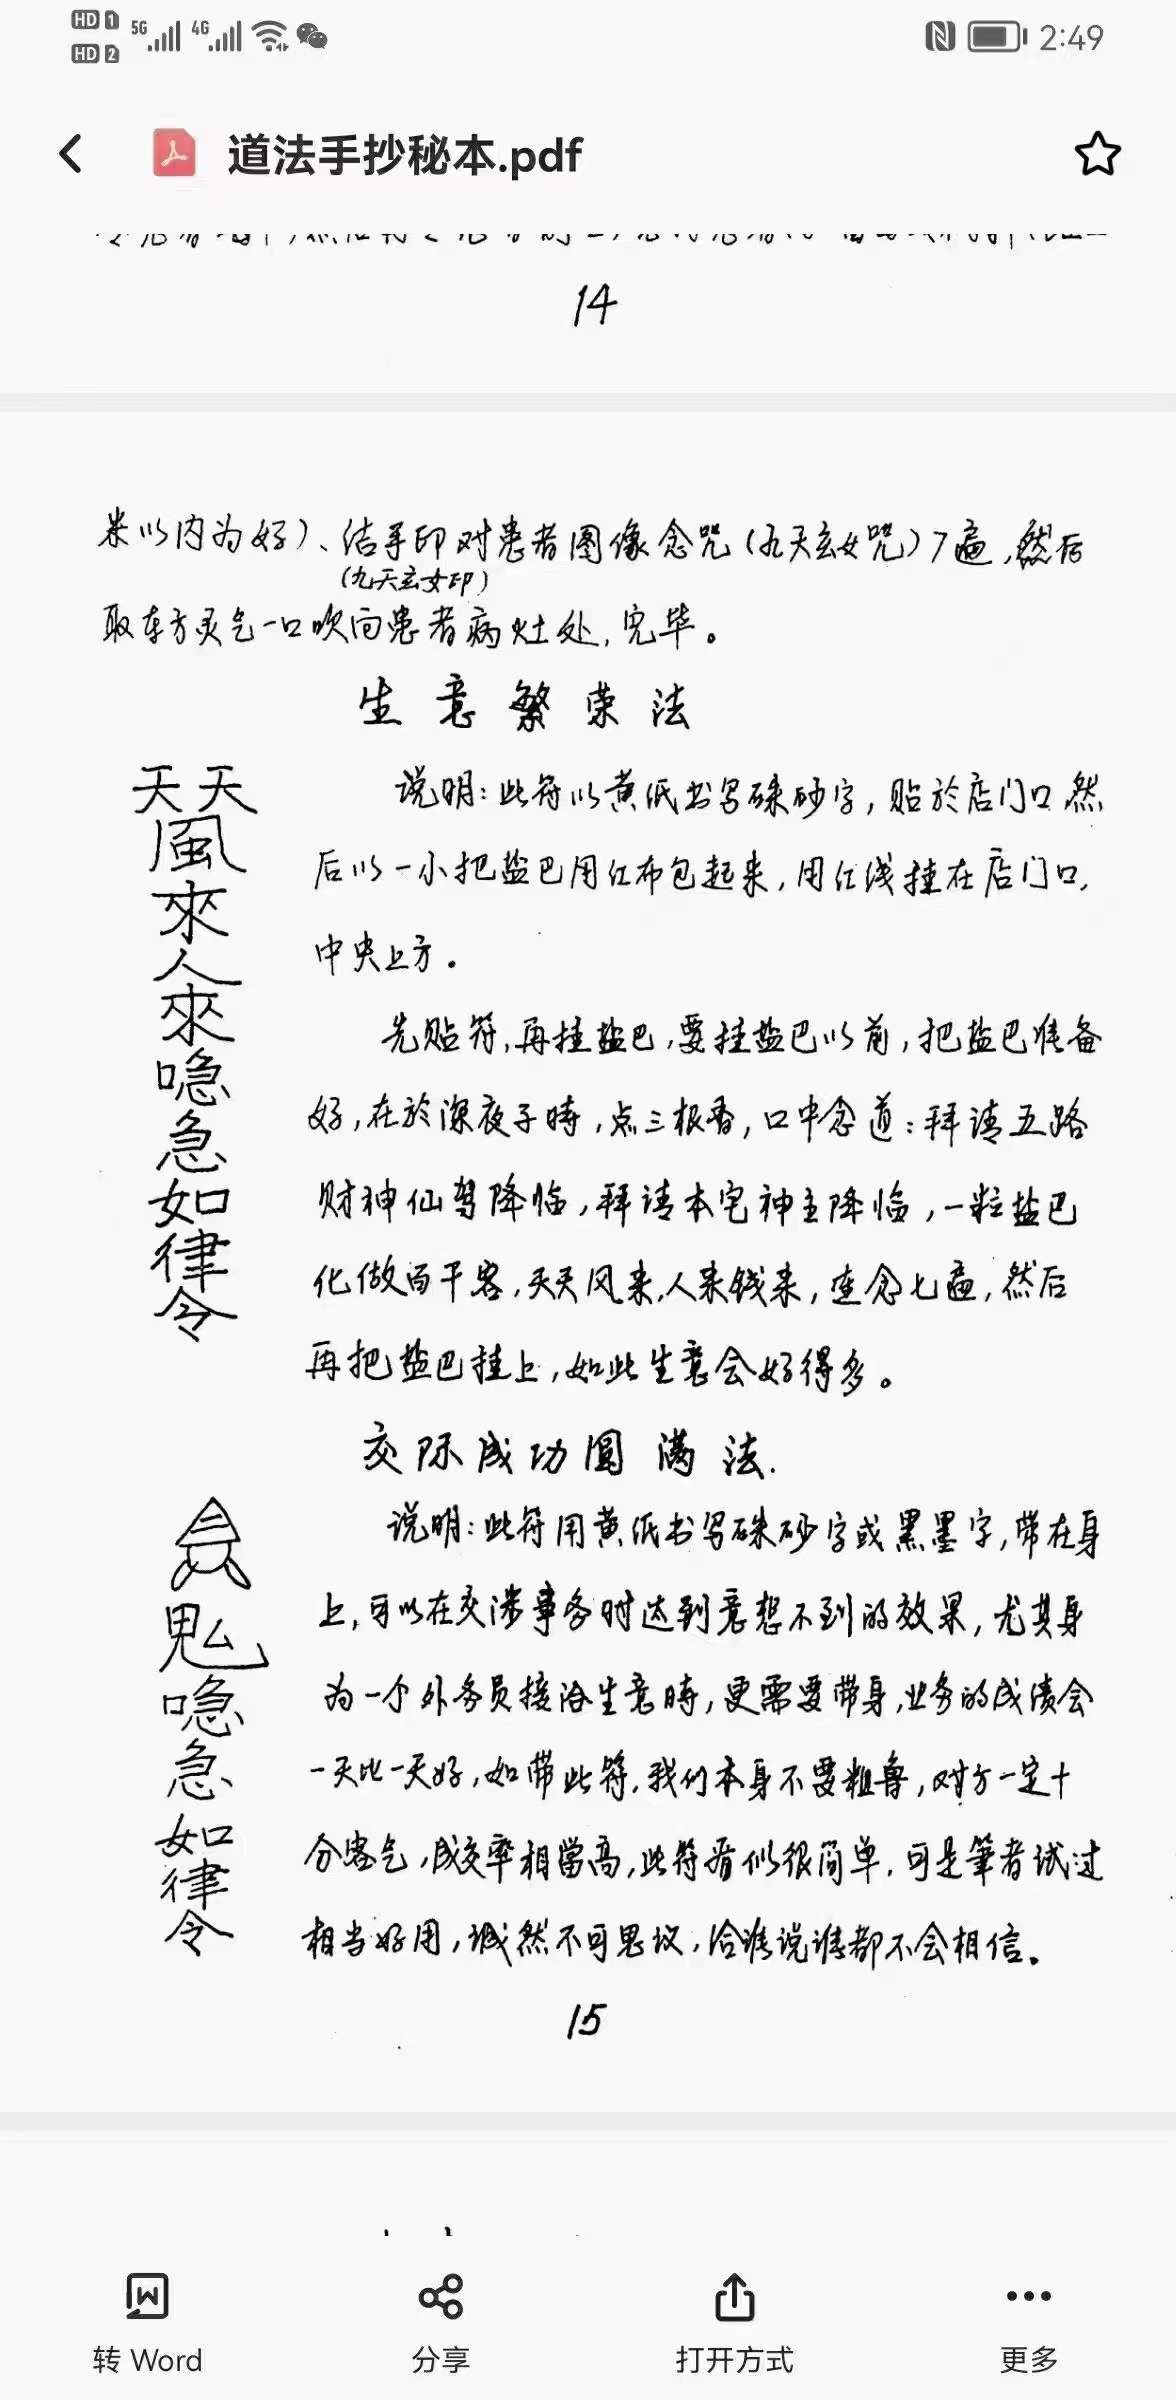 HD 1 5G 4G 2:49
HD 2
道法手抄秘本.pdf
14
米以内为好)、结手印对患者图像念咒(九天玄女咒)7遍,然后
(九天玄女印)
取东方灵气一口吹向患者病灶处,完毕。
生意繁荣法
天天
風
來
人
來
喼
急
如
律
令
说明:此符以黄纸书写硃砂字,贴於店门口,然
后以一小把盐巴用红布包起来,用红线挂在店门口,
中央上方。
先贴符,再挂盐巴,要挂盐巴以前,把盐巴准备
好,在於深夜子時,点三根香,口中念道:拜请五路
财神仙驾降临,拜请本宅神主降临,一粒盐巴
化做百千客,天天风来,人来钱来,连念七遍,然后
再把盐巴挂上,如此生意会好得多。
交际成功圆满法.
喼
急
如
律
令
说明:此符用黄纸书写硃砂字或黑墨字,带在身
上,可以在交涉事务时达到意想不到的效果,尤其身
为一个外务员接洽生意時,更需要带身,业务的成绩会
一天比一天好,如带此符,我们本身不要粗鲁,对方一定十
分客气,成交率相當高,此符看似很简单,可是筆者试过
相当好用,诚然不可思议,给谁说谁都不会相信。
15
转 Word 分享 打开方式 更多